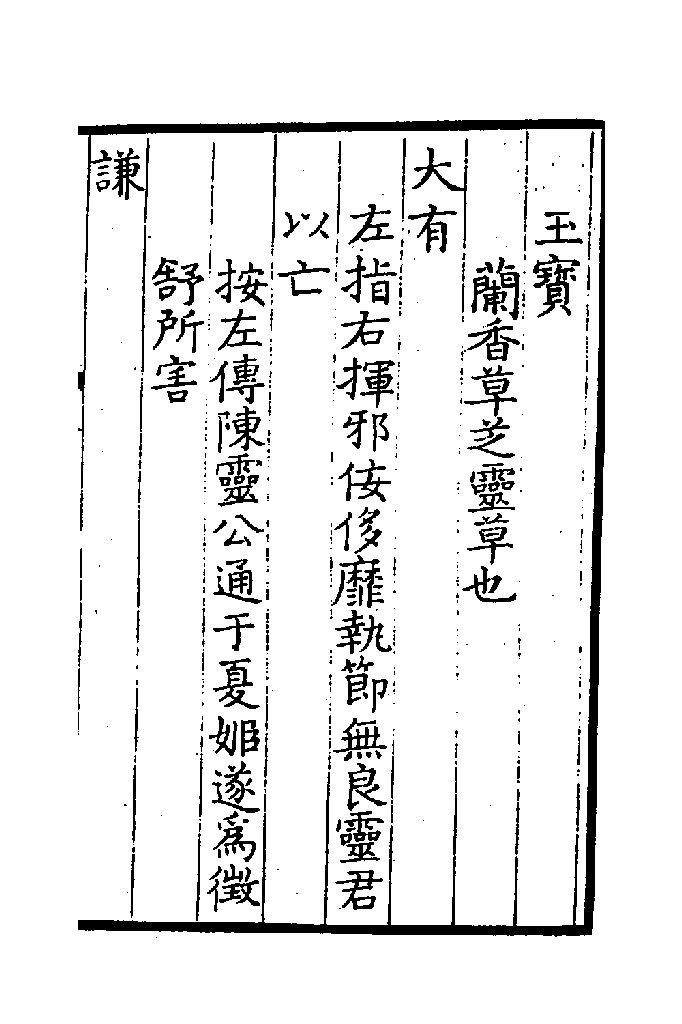 玉寳
蘭香草芝靈草也
大有
左指右揮邪佞侈靡執節無良靈君
以亡
按左傳陳靈公通于夏姬遂為徴
舒所害
謙